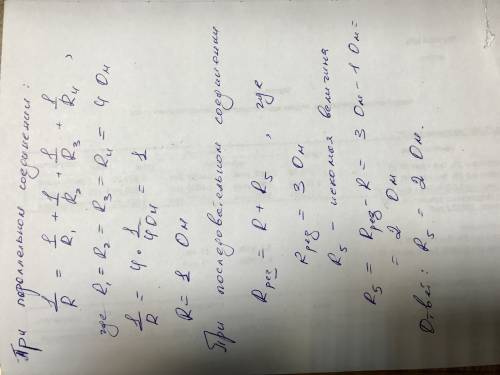 При параллельном соединении:
1/R = 1/R₁ + 1/R₂ + 1/R₃ + 1/R₄,
где R₁ = R₂ = R₃ = R₄ = 4 Ом
1/R = 4 · 1/4Ом = 1
R = 1 Ом
При последовательном соединении
Rрез = R + R₅, где
Rрез = 3 Ом
R₅ - искомая величина
R₅ = Rрез - R = 3 Ом - 1 Ом =
= 2 Ом
Ответ: R₅ = 2 Ом.